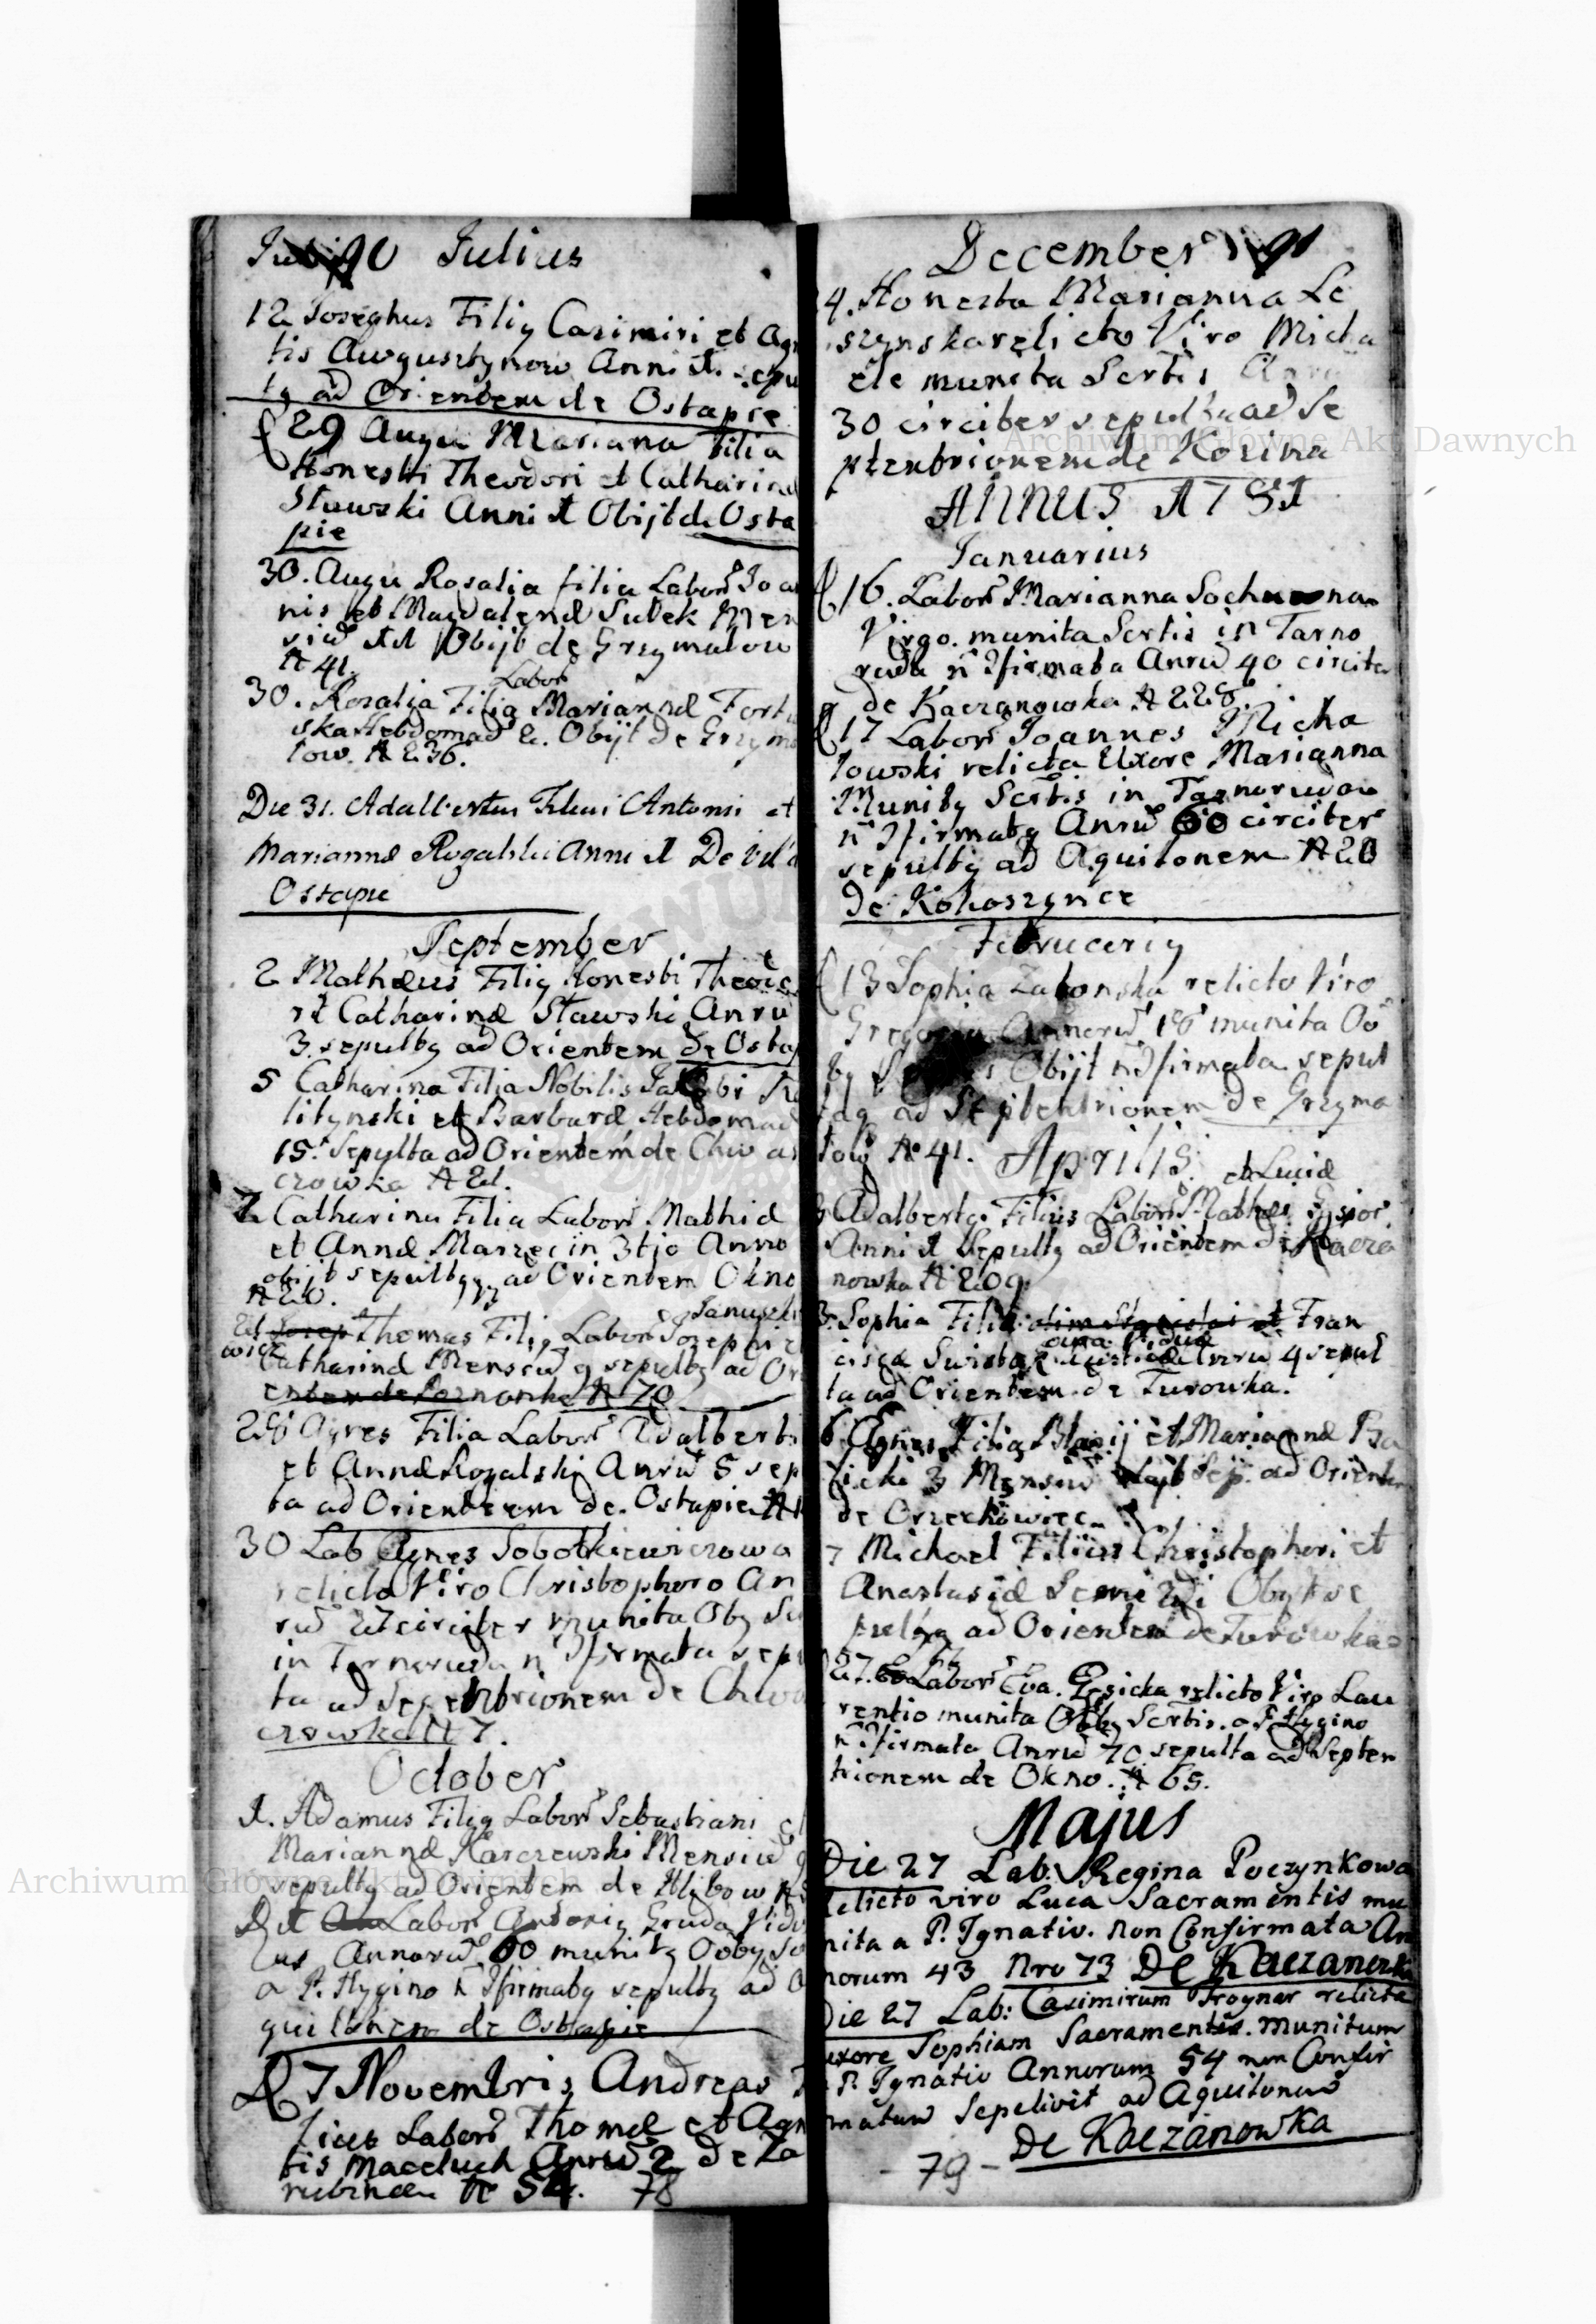 90 Iulius
12 Iosephus Filig Casimiri et Agn
tis Awgusztynow Anni 1. sepu
tg ad Orientem de Ostapie
29 Augu Mariana Filia
Honesti Theodori et Catharina
Stawski Anni 1 Obijt de Osta
pie
30. Augu Rosalia filia Labor Ioa
nis et Magdalenæ Sulek Men
siu 11 Obijt de Grzymalow
N 41.
Labor
30. Rozalia Filia Mariannæ Fort
ska Hebdomad 2. Obijt de Grzym
low. N 236.
Die 31. Adalbertus Filius Antonii et
Mariannæ Rogalski Anni 1 De
Ostapie
September
2 Mathæus Filig Honesti Theodo
ri et Catharinæ Stawski Anru
3. sepultg ad Orientem de Ostap
5 Catharina Filia Nobilis Iacobi
litynski et Barbaræ Hebdomad
15. Sepulta ad Orientem de Chw
crowka N 21.
7. Catharina Filia Labor. Mathiæ
et Annæ Marzec in 3tio Anno
obijt ad Orientem Okno
N 20.
Ianuszk
21 Thomas Filig Labor Iosephi et
wicz
Catharinæ Mensiu 9 sepultg ad Or
entem de Poznanka N 70
28 Agnes Filia Labor Adalberti
et Annæ Rogalski Anru 5 sep
ta ad Orientem de. Ostapie N
30 Lab Agnes Sobotkiewiczowa
relicto Viro Christophoro An
ru circiter munita Obg
in Tarnoruda n firmata sepu
ta ad Septentrionem de Chwo
crowka N 7.
October
1. Adamus Filig Labor Sebastiani et
Mariannæ Karczewski Mensiu
sepultg ad Orientem de Hlibow N
21 Labor Antonig Gruda Vidu
us Annoru 60 munitg Oobg
a P. Hygino n firmatg sepultg ad A
quilonem de Ostapie
7 Novembris Andreas
lius Labor Thomæ et Agn
tis Maceluch Anru 2 de Za
rubince N 54. 78
December 90
4. Honesta Marianna Le
szynska relicto Viro Micha
ele munita Scrtis
30 circiter sepulta ad Se
ptentrionem de Kozina
ANNUS 1791
Ianuarius
16. Labor Marianna Sochu na
Virgo. munita Scrtis in Tarno
ruda n firmata Anru 40 circiter
de Kaczanowka N 228.
17 Labor Ioannes Micha
lowski relicta Uxore Marianna
Munitg Scrtis in Tarnoruda
n firmatg Anru 60 circiter
sepultg ad Aquilonem N 20
de Kokoszynce
Februarig
13 Sophia Zabonska relicto Viro
munita Oo
bg Obijt n firmata sepul
ta ad Septentrionem de Grzyma
low N 41. Aprilis
et Luciæ
Adalbertg. Filius Labor Mathei
Anni 1 Sepultg ad Orientem de Kacza
nowka N 209.
3. Sophia Filia olim Stanislai et Fran
ciscæ 4 sepul
ta ad Orientem de Turowka.
6 Agnes Filia Blasij et Mariannæ
licki 3 Mensiu Sep. ad Orientem
de Orzechowiec
7 Michael Filius Christophori et
Anastasiæ Obijt se
pultg ad Orientem de Turowka
27. Labor Eva. Gęsicka relicto Viro Lau
rentio munita Obg Scrtis. a P. Hygino
n firmata Anru 70 sepulta ad Septen
trionem de Okno. N 65.
Majus
Die 27 Lab. Regina Poczynkowa
relicto viro Luca Sacramentis mu
nita a P. Ignatio. non Confirmata An
norum 43 Nro 73 De Kaczanowka
Die 27 Lab: Casimirum Troynar relicta
uxore Sophiam Sacramentis. munitum
P. Ignatio Annorum 54 non Confir
matum Sepelivit ad Aquilonem
De Kaczanowka
- 79 -
Archiwum Główne Akt Dawnych
Archiwum Główne Akt Dawnych